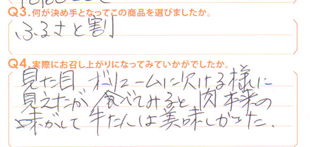 Q3.何が決め手となってこの商品を選びましたか。
ふるさと割
Q4.実際にお召し上がりになってみていかがでしたか。
見た目 ボリュームに欠ける様に
見えたが、食べてみると肉本来の
味がして牛たんは美味しかった。